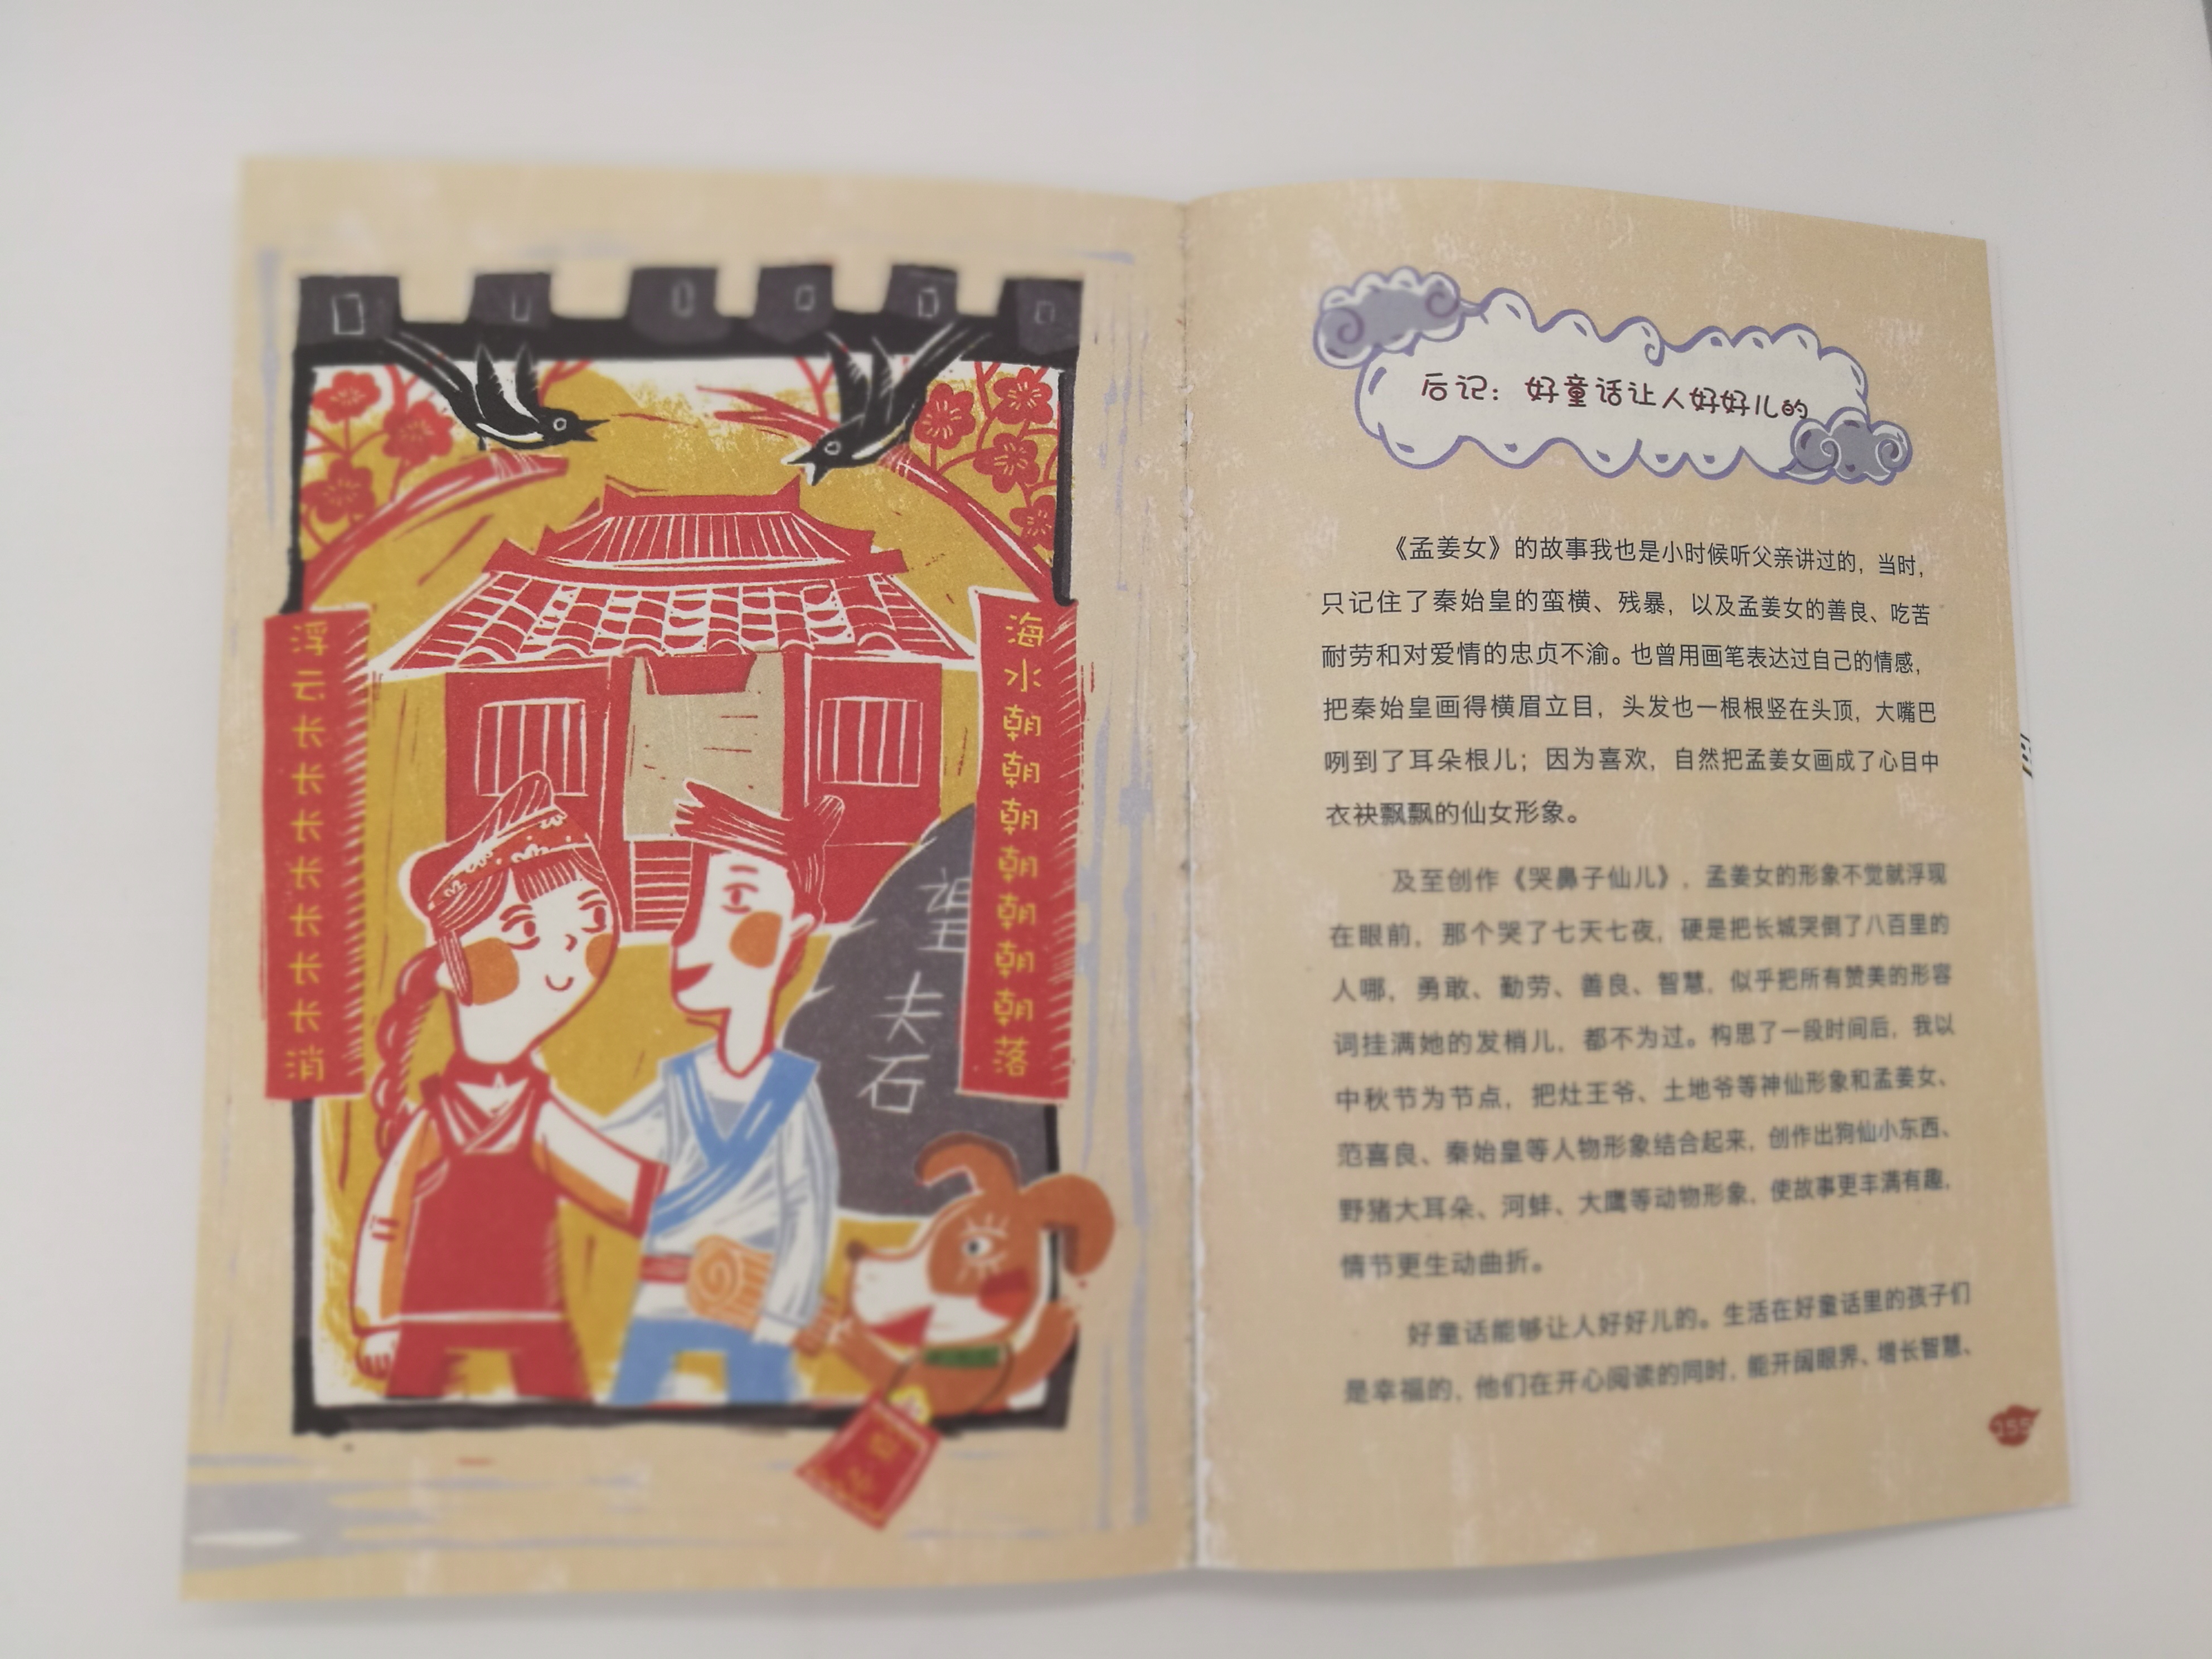 海水朝朝朝朝朝朝朝落
浮云长长长长长长长消
望夫石
后记：好童话让人好好儿的
《孟姜女》的故事我也是小时候听父亲讲过的，当时，
只记住了秦始皇的蛮横、残暴，以及孟姜女的善良、吃苦
耐劳和对爱情的忠贞不渝。也曾用画笔表达过自己的情感，
把秦始皇画得横眉立目，头发也一根根竖在头顶，大嘴巴
咧到了耳朵根儿；因为喜欢，自然把孟姜女画成了心目中
衣袂飘飘的仙女形象。
及至创作《哭鼻子仙儿》，孟姜女的形象不觉就浮现
在眼前，那个哭了七天七夜，硬是把长城哭倒了八百里的
人哪，勇敢、勤劳、善良、智慧，似乎把所有赞美的形容
词挂满她的发梢儿，都不为过。构思了一段时间后，我以
中秋节为节点，把灶王爷、土地爷等神仙形象和孟姜女、
范喜良、秦始皇等人物形象结合起来，创作出狗仙小东西、
野猪大耳朵、河蚌、大鹰等动物形象，使故事更丰满有趣，
情节更生动曲折。
好童话能够让人好好儿的。生活在好童话里的孩子们
是幸福的，他们在开心阅读的同时，能开阔眼界、增长智慧、
155